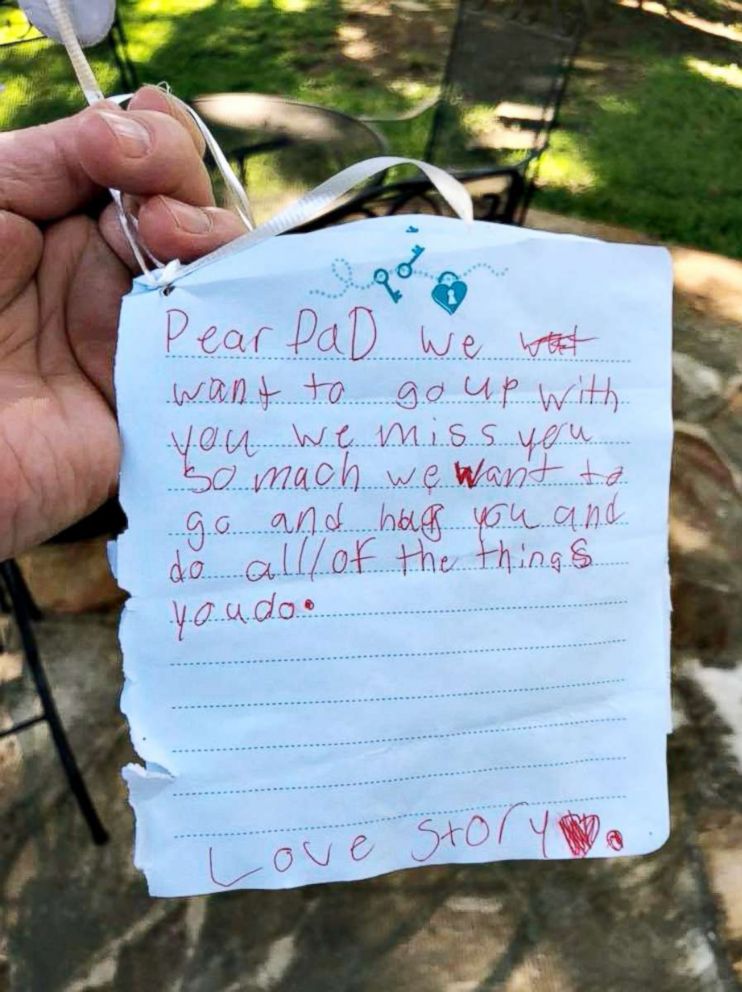 Dear DaD we
want to go up with
you we miss you
so mach we want to
go and hug you and
do all of the things
you do.
Love Story.